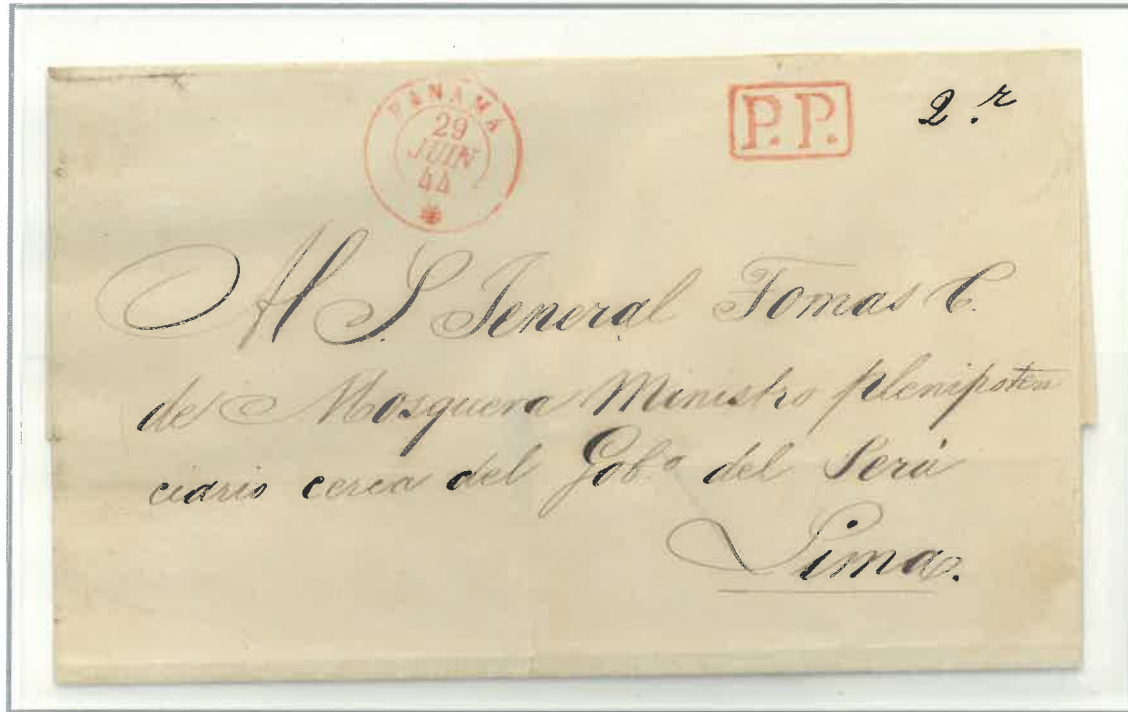 PANAMA
29
JUIN
44
P.P.
2.r
Al S. Jeneral Tomas C.
de Mosquera Ministro plenipoten
ciario cerca del Gobº del Perú
Lima.